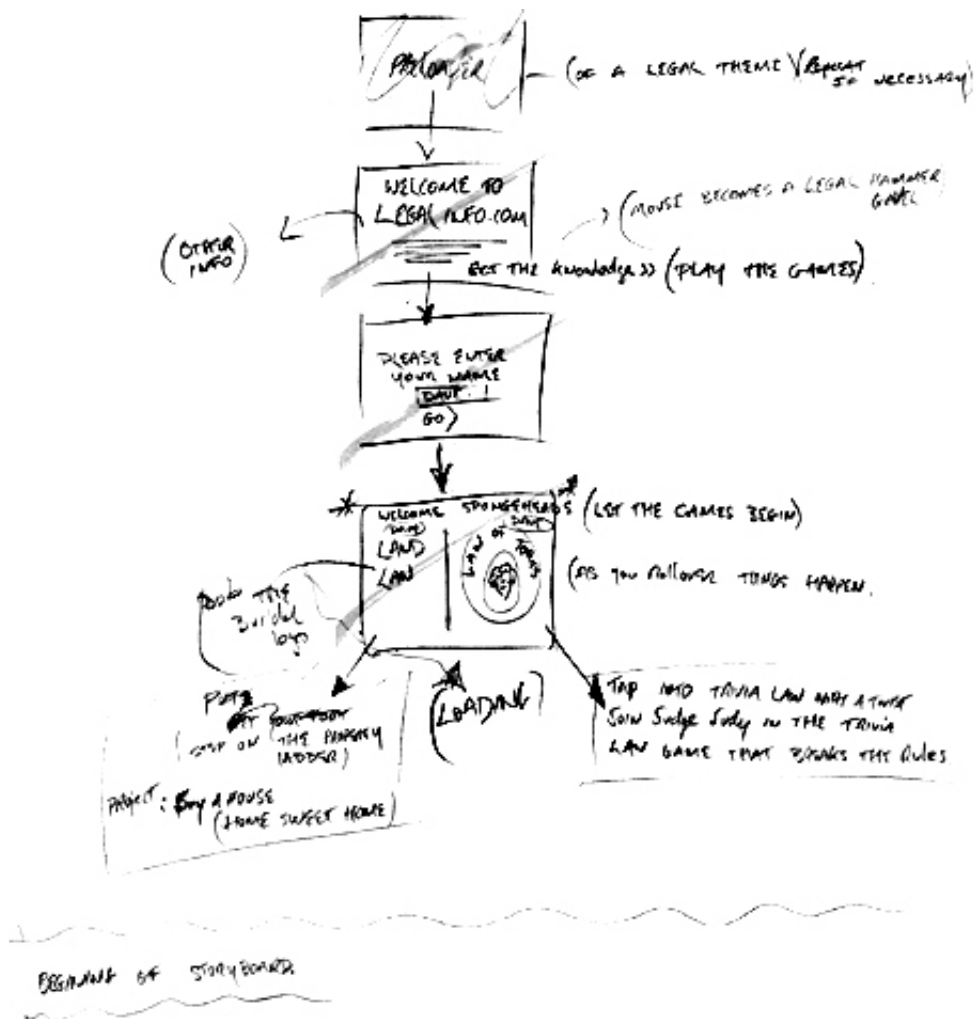 PRELOADER
(OF A LEGAL THEME) (REPEAT
IF NECESSARY)
WELCOME TO
LEGALINFO.COM
(OTHER
INFO)
(MOUSE BECOMES A LEGAL HAMMER
GAVEL
GET THE knowledge >> (PLAY THE GAMES)
PLEASE ENTER
YOUR NAME
DAVE
GO>
* WELCOME SPONGEHEADS * (LET THE GAMES BEGIN)
LAND
LAW
LAW OF TORTS
(AS you Rollover THINGS HAPPEN.
THE
(LOADING)
STEP ON (THE PROPERTY
LADDER)
PROJECT: Buy A HOUSE
(HOME SWEET HOME)
TAP INTO TRIVIA LAW WITH A TWIST
Join Judge Judy IN THE TRIVIA
LAW GAME THAT BREAKS THE RULES
BEGINNING OF STORYBOARD.